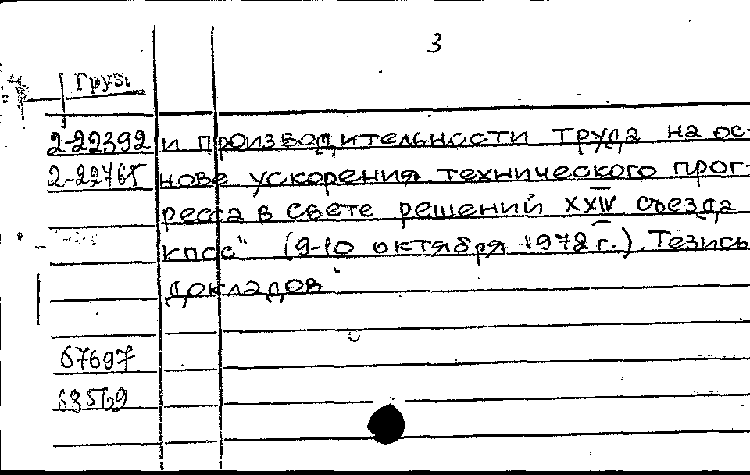 3
Груз.
2-22392 и производительности труда на ос-
2-22765 нове ускорения технического прог-
ресса в свете решений XXIV съезда
КПСС" (9-10 октября 1972 г.) Тезисы
докладов
67697